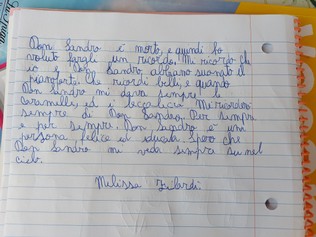 Don Sandro è morto, e quindi ho
voluto fargli un ricordo. Mi ricordo che
io e Don Sandro, abbiamo suonato il
pianoforte. Che ricordi belli, e quando
Don Sandro mi dava sempre le
caramelle, ed i leccalecca. Mi ricorderò
sempre di Don Sandro. Per sempre
e per sempre. Don Sandro è una
persona felice ed educata. Spero che
Don Sandro mi veda sempre su nel
cielo.
Melissa Filardi